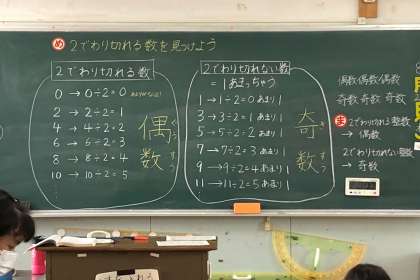 め 2でわり切れる数を見つけよう
2でわり切れる数
0 → 0÷2=0
2 → 2÷2=1
4 → 4÷2=2
6 → 6÷2=3
8 → 8÷2=4
10 → 10÷2=5
偶数
ぐうすう
2でわり切れない数
=1あまっちゃう
1 → 1÷2=0あまり1
3 → 3÷2=1あまり1
5 → 5÷2=2あまり1
7 → 7÷2=3あまり1
9 → 9÷2=4あまり1
11 → 11÷2=5あまり1
奇数
きすう
偶数偶数偶数
奇数奇数奇数
ま 2でわり切れる整数
→ 偶数
2でわり切れない整数
→ 奇数